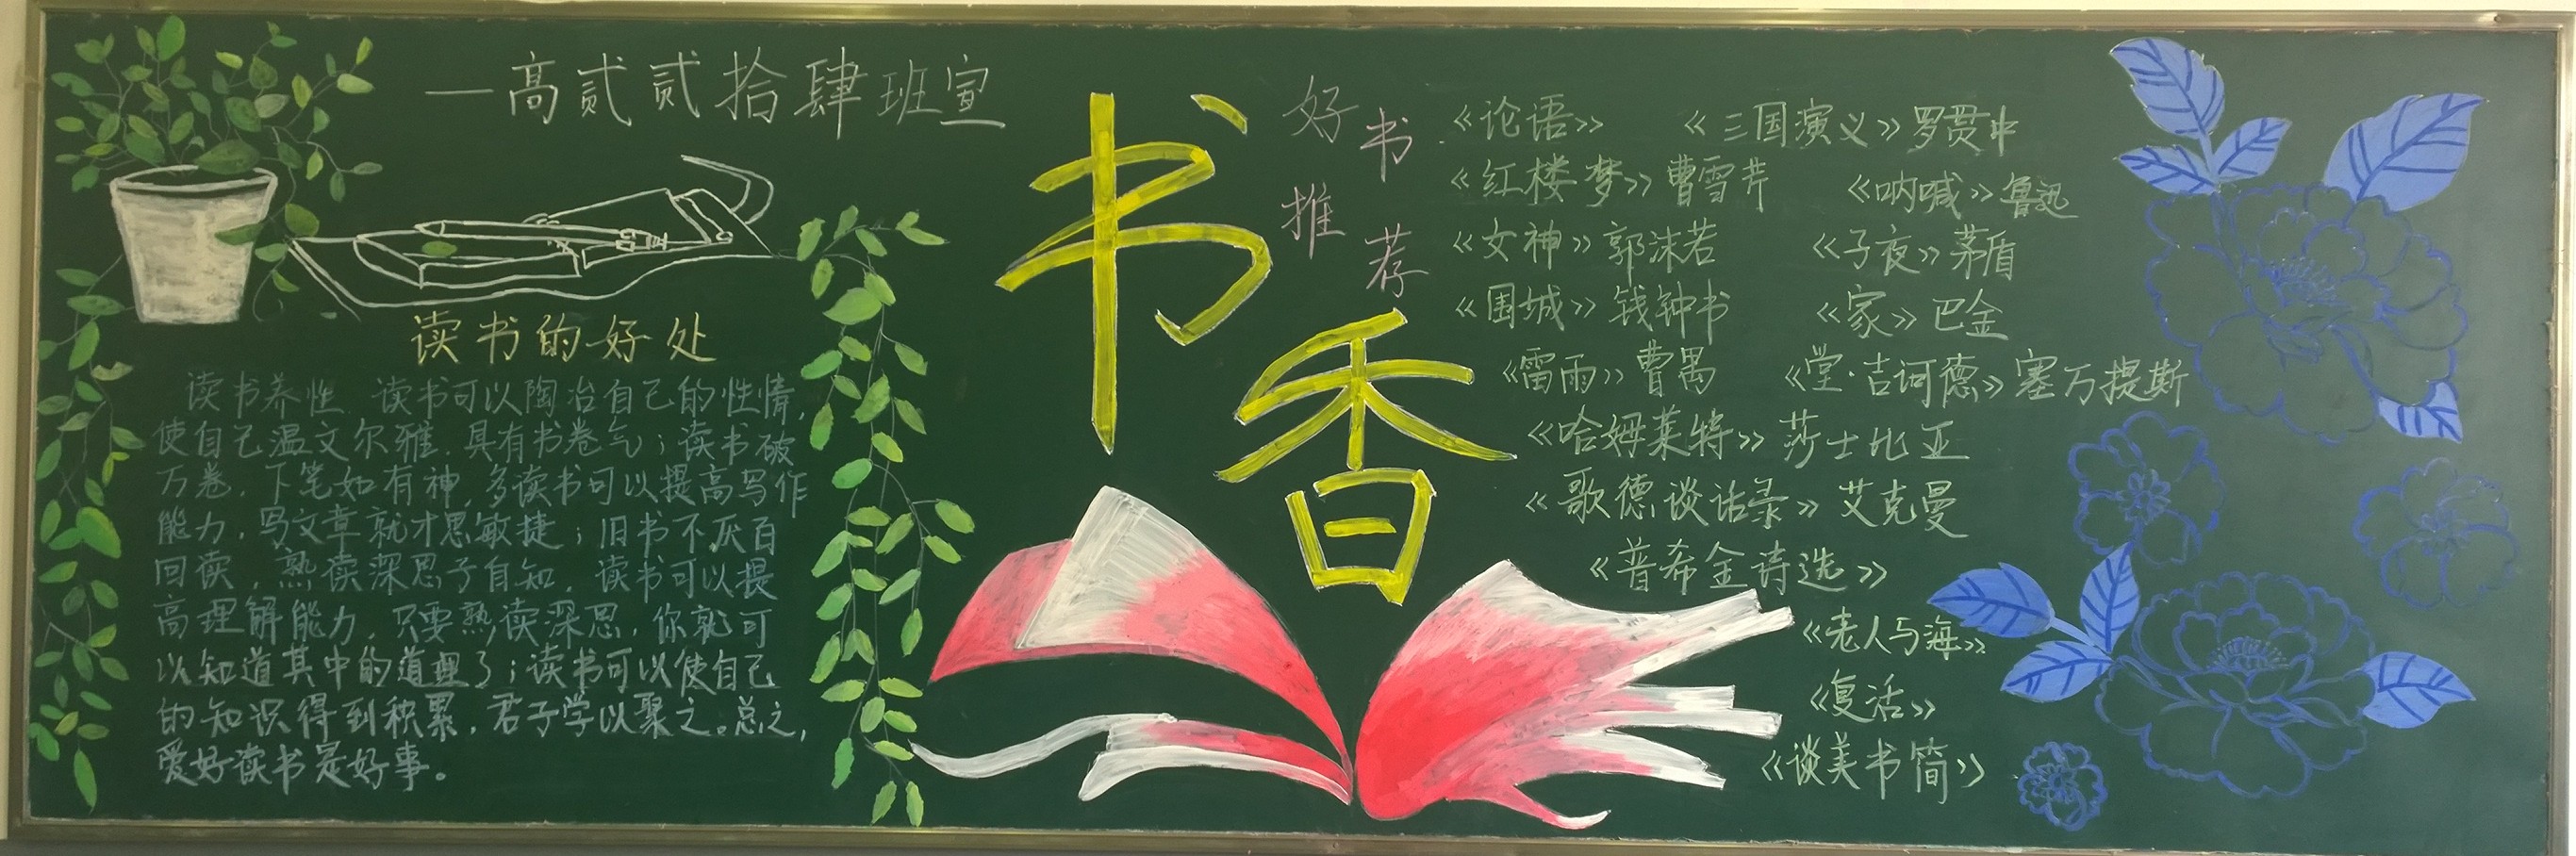 一高贰贰拾肆班宣
读书的好处
读书养性,读书可以陶冶自己的性情,
使自己温文尔雅,具有书卷气;读书破
万卷,下笔如有神,多读书可以提高写作
能力,写文章就才思敏捷;旧书不厌百
回读,熟读深思子自知,读书可以提
高理解能力,只要熟读深思,你就可
以知道其中的道理了;读书可以使自己
的知识得到积累,君子学以聚之。总之,
爱好读书是好事。
书香
好书推荐
《论语》 《三国演义》罗贯中
《红楼梦》曹雪芹 《呐喊》鲁迅
《女神》郭沫若 《子夜》茅盾
《围城》钱钟书 《家》巴金
《雷雨》曹禺 《堂·吉诃德》塞万提斯
《哈姆莱特》莎士比亚
《歌德谈话录》艾克曼
《普希金诗选》
《老人与海》
《复活》
《谈美书简》